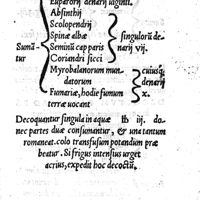 Eupatorij denarij uiginti.
Absinthij
Scolopendrij
Spinæ albæ
Sumā-
tur
Seminū cap paris
Coriandri sicci
singulorū de-
narij vij.
Myrobalanorum mun-
datorum
Fumariæ, hodie fumum
terræ uocant
cuiusq;
denarij
x.
Decoquantur singula in aquæ ℔ iij. do-
nec partes duæ consumantur, & una tantum
romaneat. colo transfusum potandum præ
beatur. Si frigus intensius urget
acrius, expedit hoc decoctū.